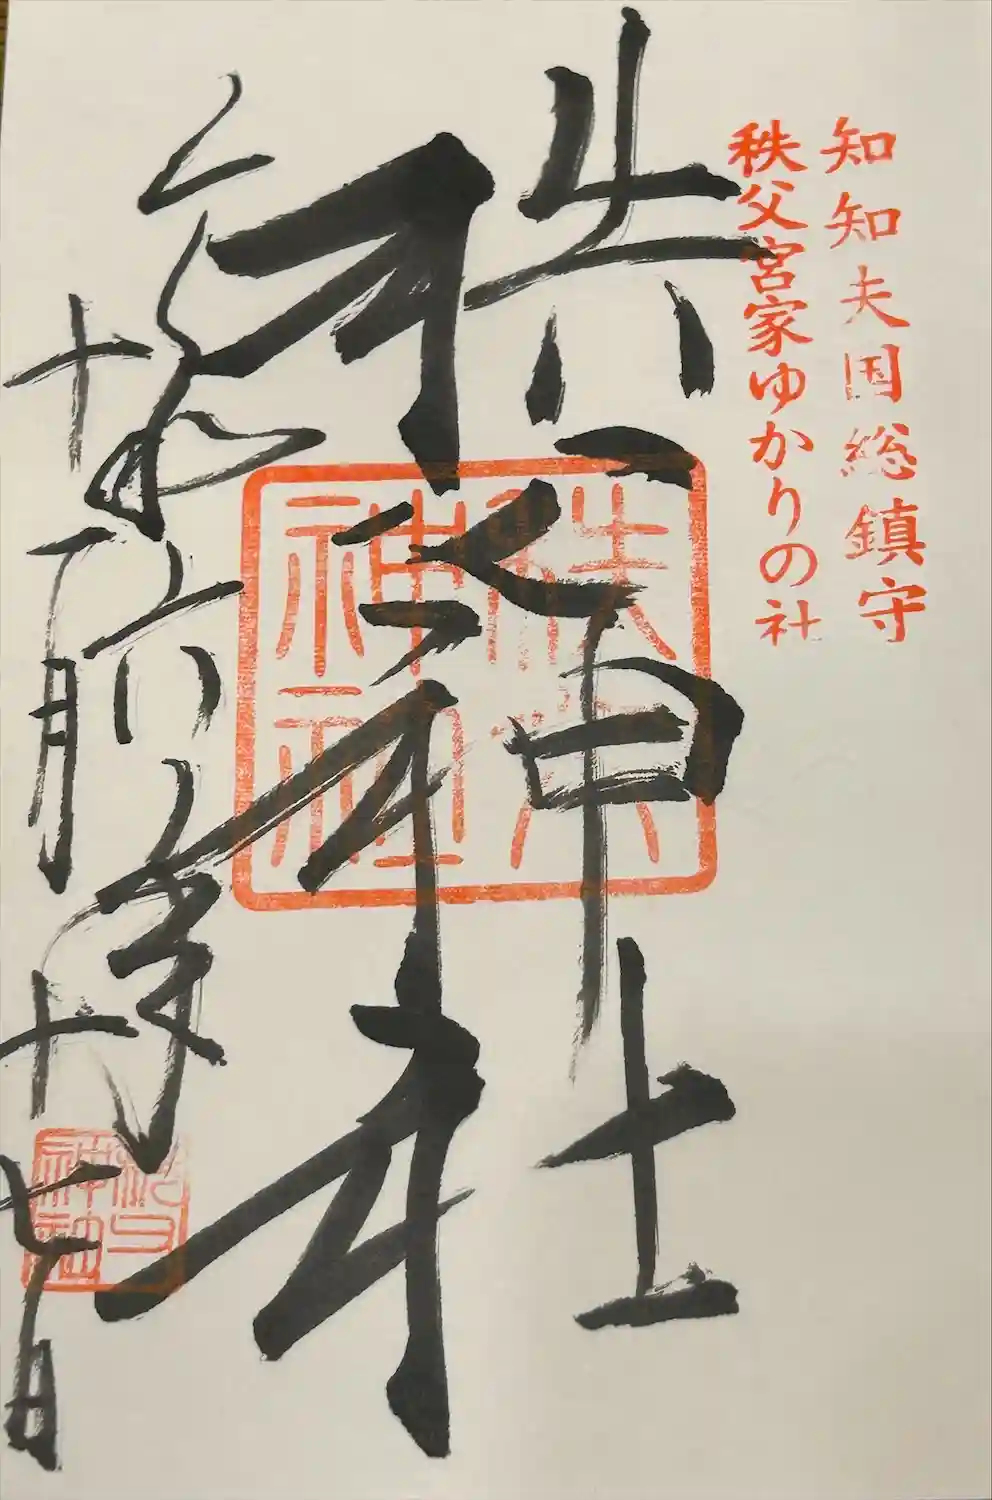 知知夫国総鎮守
秩父宮家ゆかりの社
秩父神社
秩父神社
令和六年
十一月十七日
秩父神社